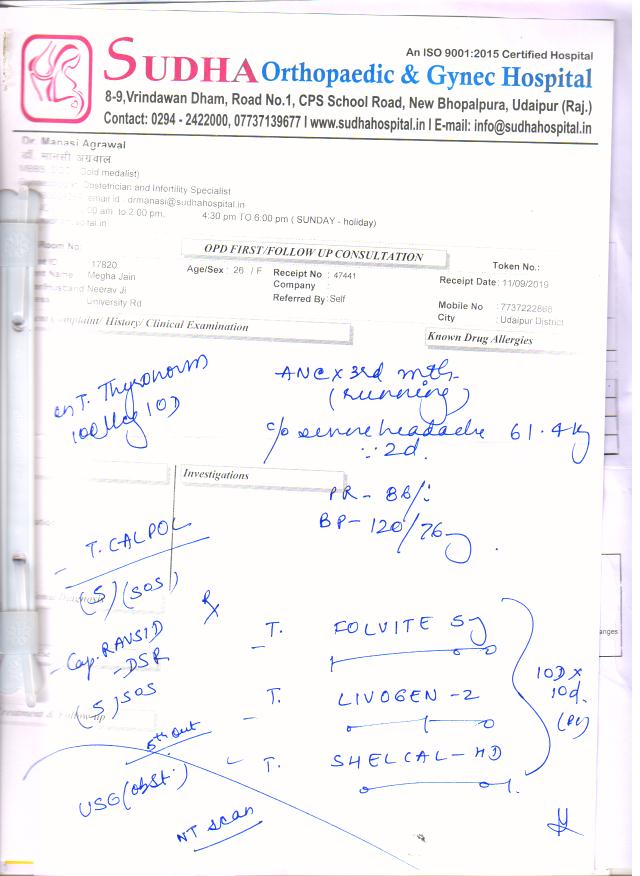 An ISO 9001:2015 Certified Hospital
SUDHA Orthopaedic & Gynec Hospital
8-9,Vrindawan Dham, Road No.1, CPS School Road, New Bhopalpura, Udaipur (Raj.)
Contact: 0294 - 2422000, 07737139677 I www.sudhahospital.in I E-mail: info@sudhahospital.in
Dr. Manasi Agrawal
डॉ. मानसी अग्रवाल
Gold medalist)
Obstetrician and Infertility Specialist
email id : drmanasi@sudhahospital.in
00 am to 2:00 pm. 4:30 pm TO 6:00 pm ( SUNDAY - holiday)
Room No:
OPD FIRST/FOLLOW UP CONSULTATION
Token No.:
17820
Age/Sex : 26 / F
Receipt No : 47441
Receipt Date : 11/09/2019
Name Megha Jain
Company :
Husband Neerav Ji
Referred By : Self
Mobile No : 7737222868
University Rd
City : Udaipur District
Complaint/ History/ Clinical Examination
Known Drug Allergies
on T. Thyronorm
100 Mcg 1OD
ANC x 3rd mth
(running)
c/o severe headache 61.4 kg
∵ 2d.
Investigations
PR - 88/
BP - 120/76
T. CALPOL
(S) (SOS)
Diagnosis
Rx
Cap. RAVSID
- DSR
(S) SOS
T. FOLVITE 5
T. LIVOGEN - 2
T. SHELCAL - HD
10D x
10d.
Treatment & Follow up
USG (obst.)
NT scan
anges